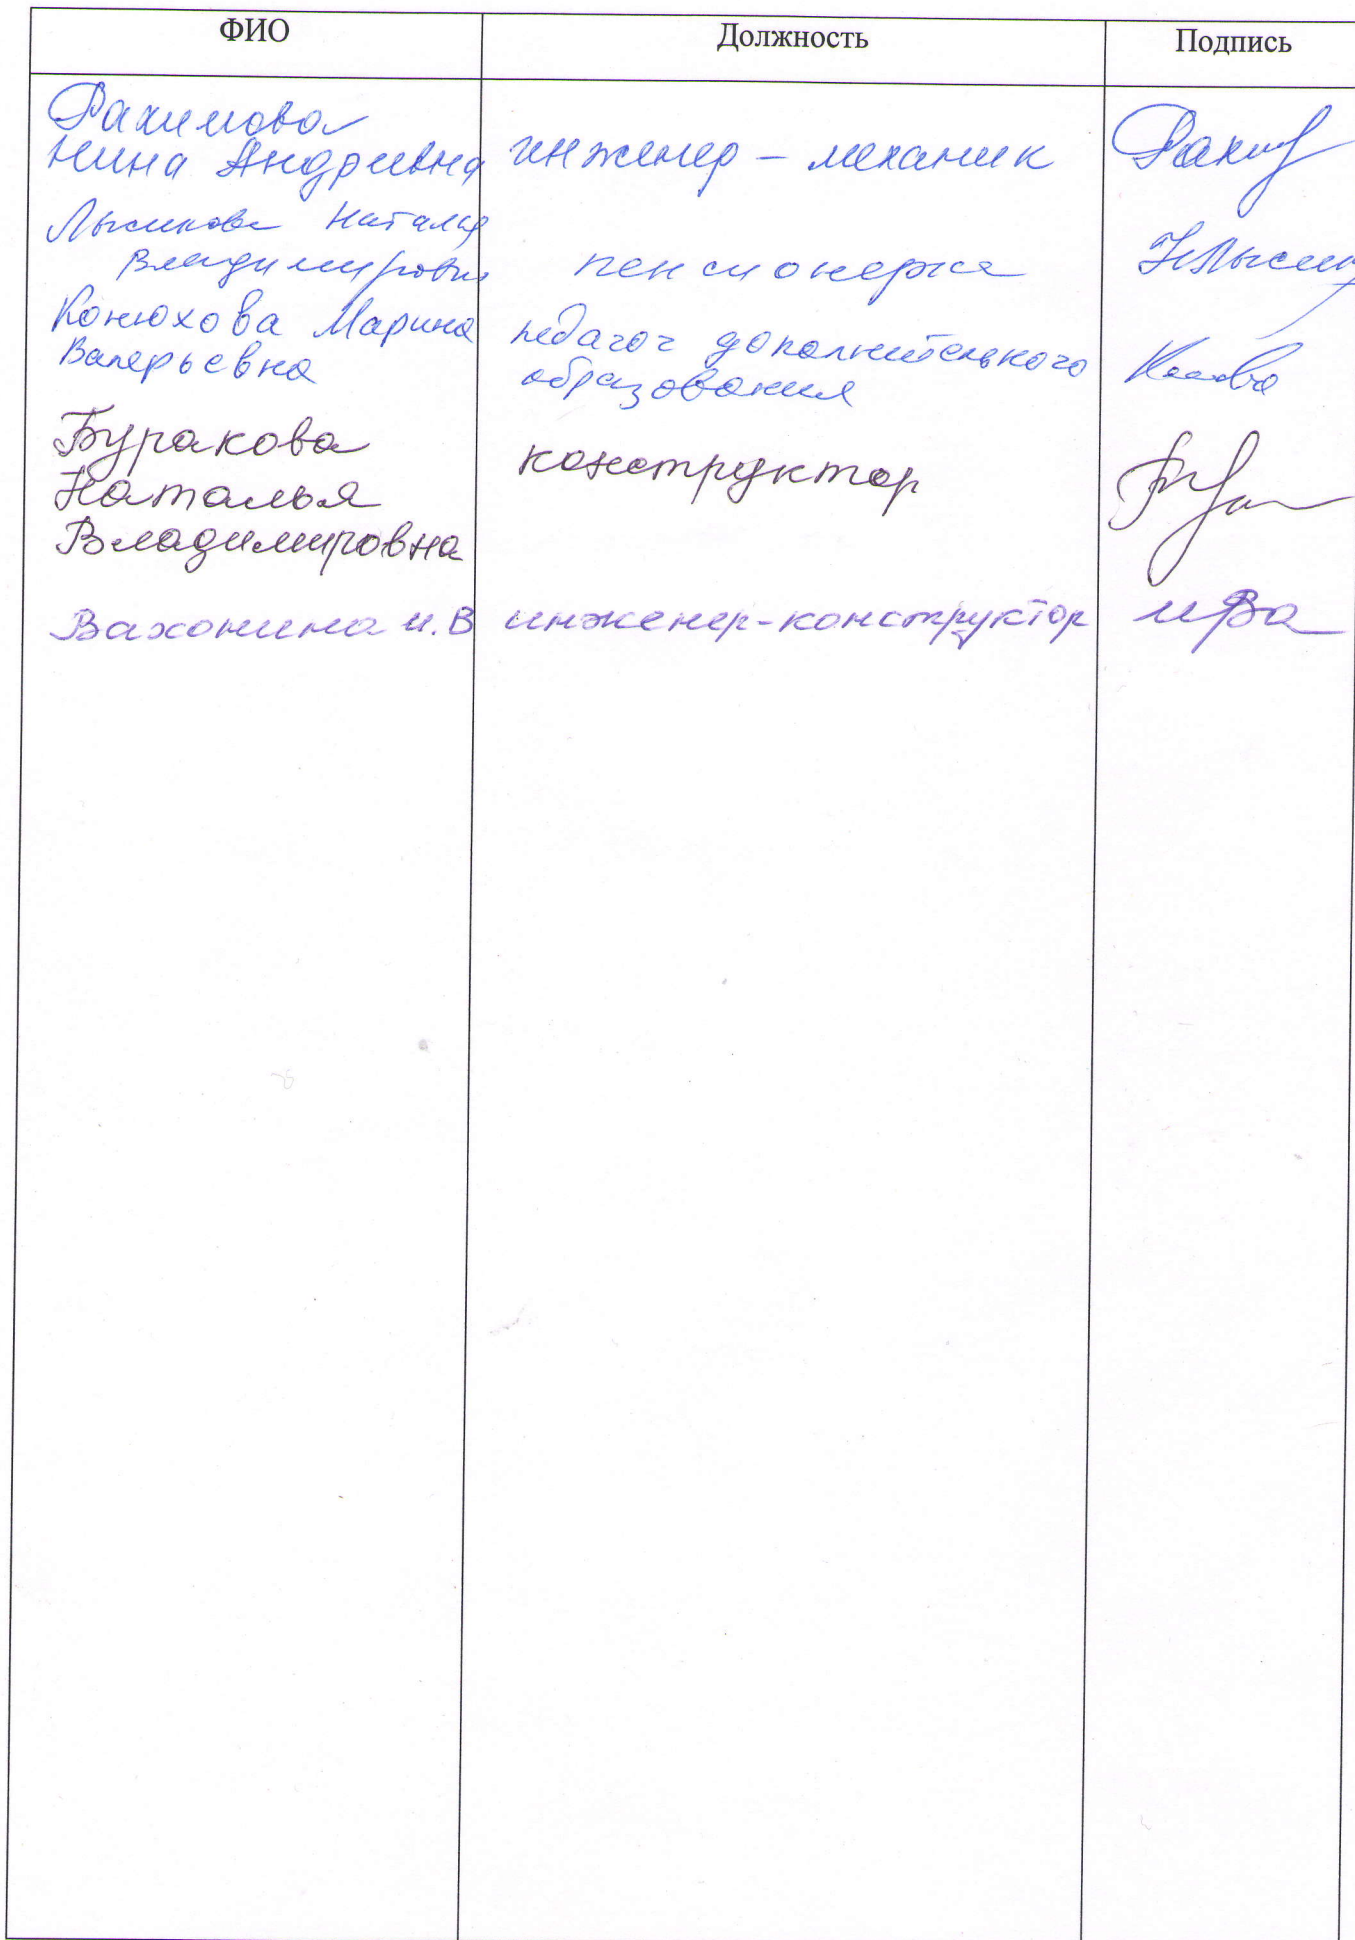 ФИО Должность Подпись
Рахимова
Нина Андреевна инженер – механик Рахим
Лысикова Наталья
Владимировна пенсионерка НЛысик
Конюхова Марина педагог дополнительного
Валерьевна образования
Буракова конструктор
Наталья
Владимировна
Вахонина И.В инженер-конструктор ИВа